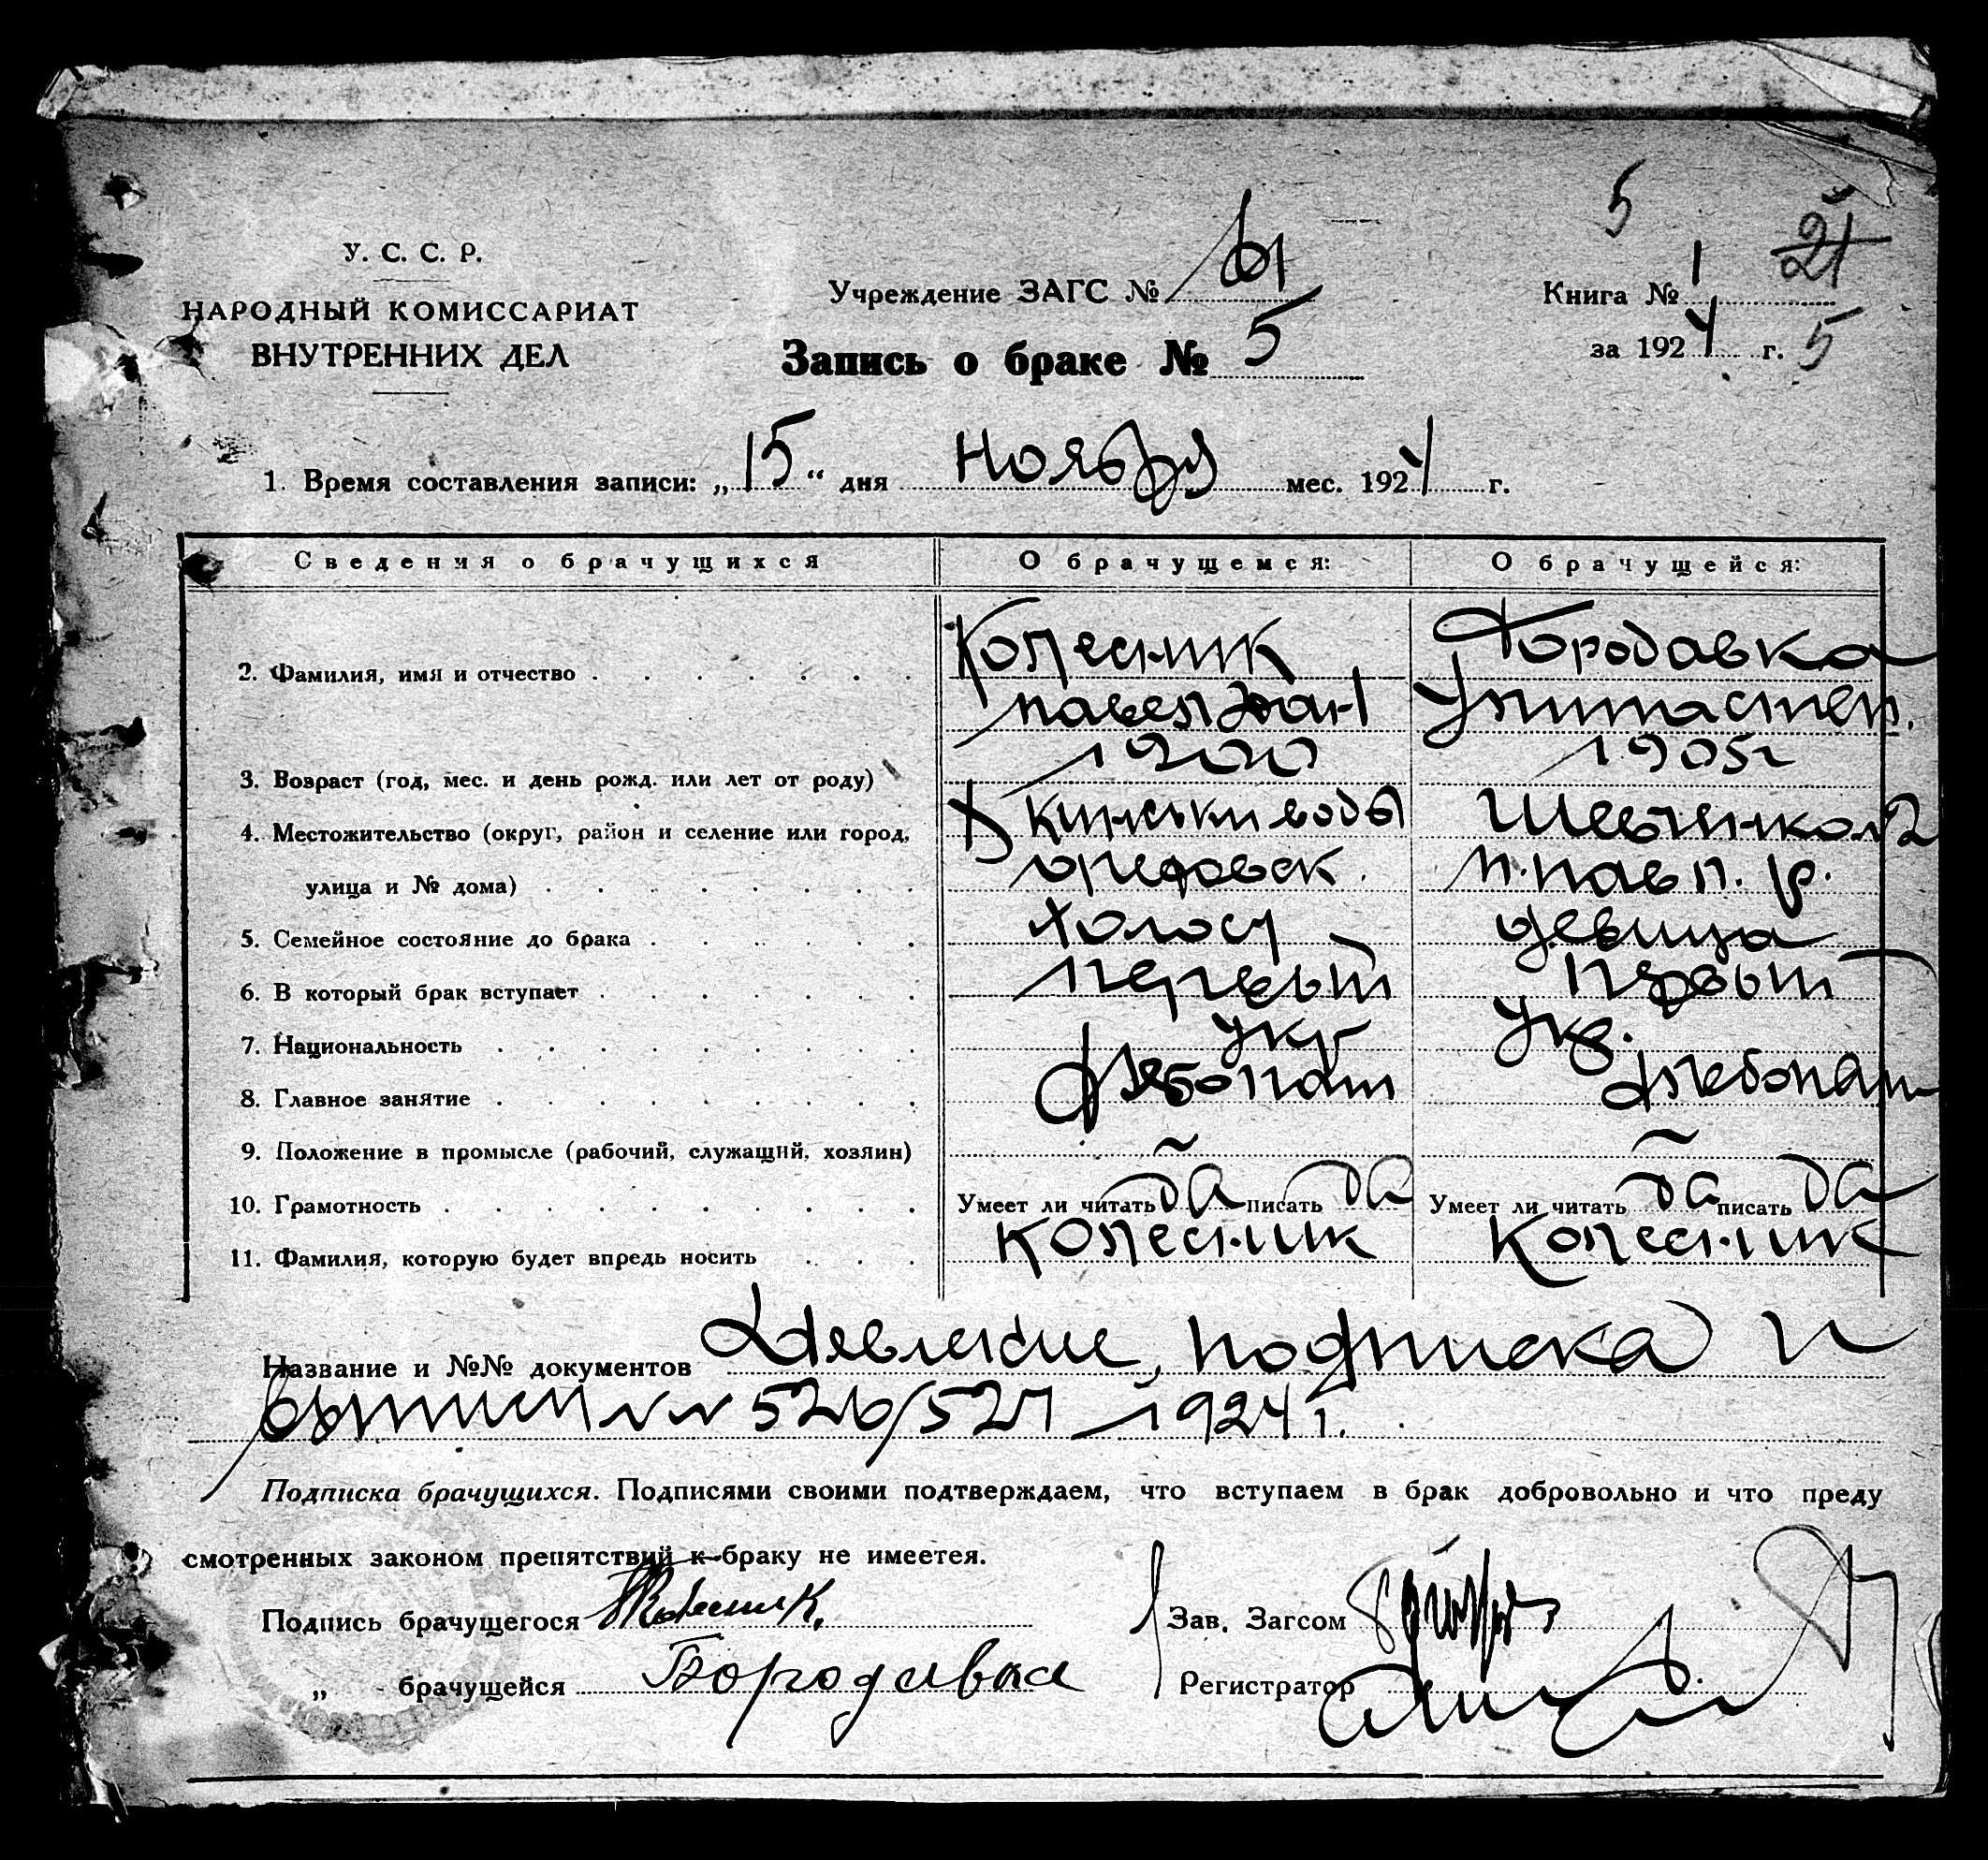 5
У. С. С. Р.
НАРОДНЫЙ КОМИССАРИАТ
ВНУТРЕННИХ ДЕЛ
Учреждение ЗАГС № 61
Книга № 1 21
Запись о браке № 5
за 1924 г. 5
1. Время составления записи: „15“ дня Ноября мес. 1924 г.
Сведения о брачущихся О брачущемся: О брачущейся:
2. Фамилия, имя и отчество . Колесник Бородавка
Павел
3. Возраст (год, мес. и день рожд. или лет от роду) 1900 1905г
4. Местожительство (округ, район и селение или город, Кинськи воды
улица и № дома) . ореховск. п. павл. р.
5. Семейное состояние до брака . холост девица
6. В который брак вступает . Первый Первый
7. Национальность . Укр Укр.
8. Главное занятие . Хлебопаш Хлебопаш
9. Положение в промысле (рабочий, служащий, хозяин) ~ ~
10. Грамотность . Умеет ли читать да писать да Умеет ли читать да писать да
11. Фамилия, которую будет впредь носить . Колесник Колесник
Название и №№ документов Заявление, подписка и
выписи 526/527 1924 г.
Подписка брачущихся. Подписями своими подтверждаем, что вступаем в брак добровольно и что преду
смотренных законом препятствий к браку не имеетея.
Подпись брачущегося Колесник.
Зав. Загсом
„ брачущейся Бородавка
Регистратор